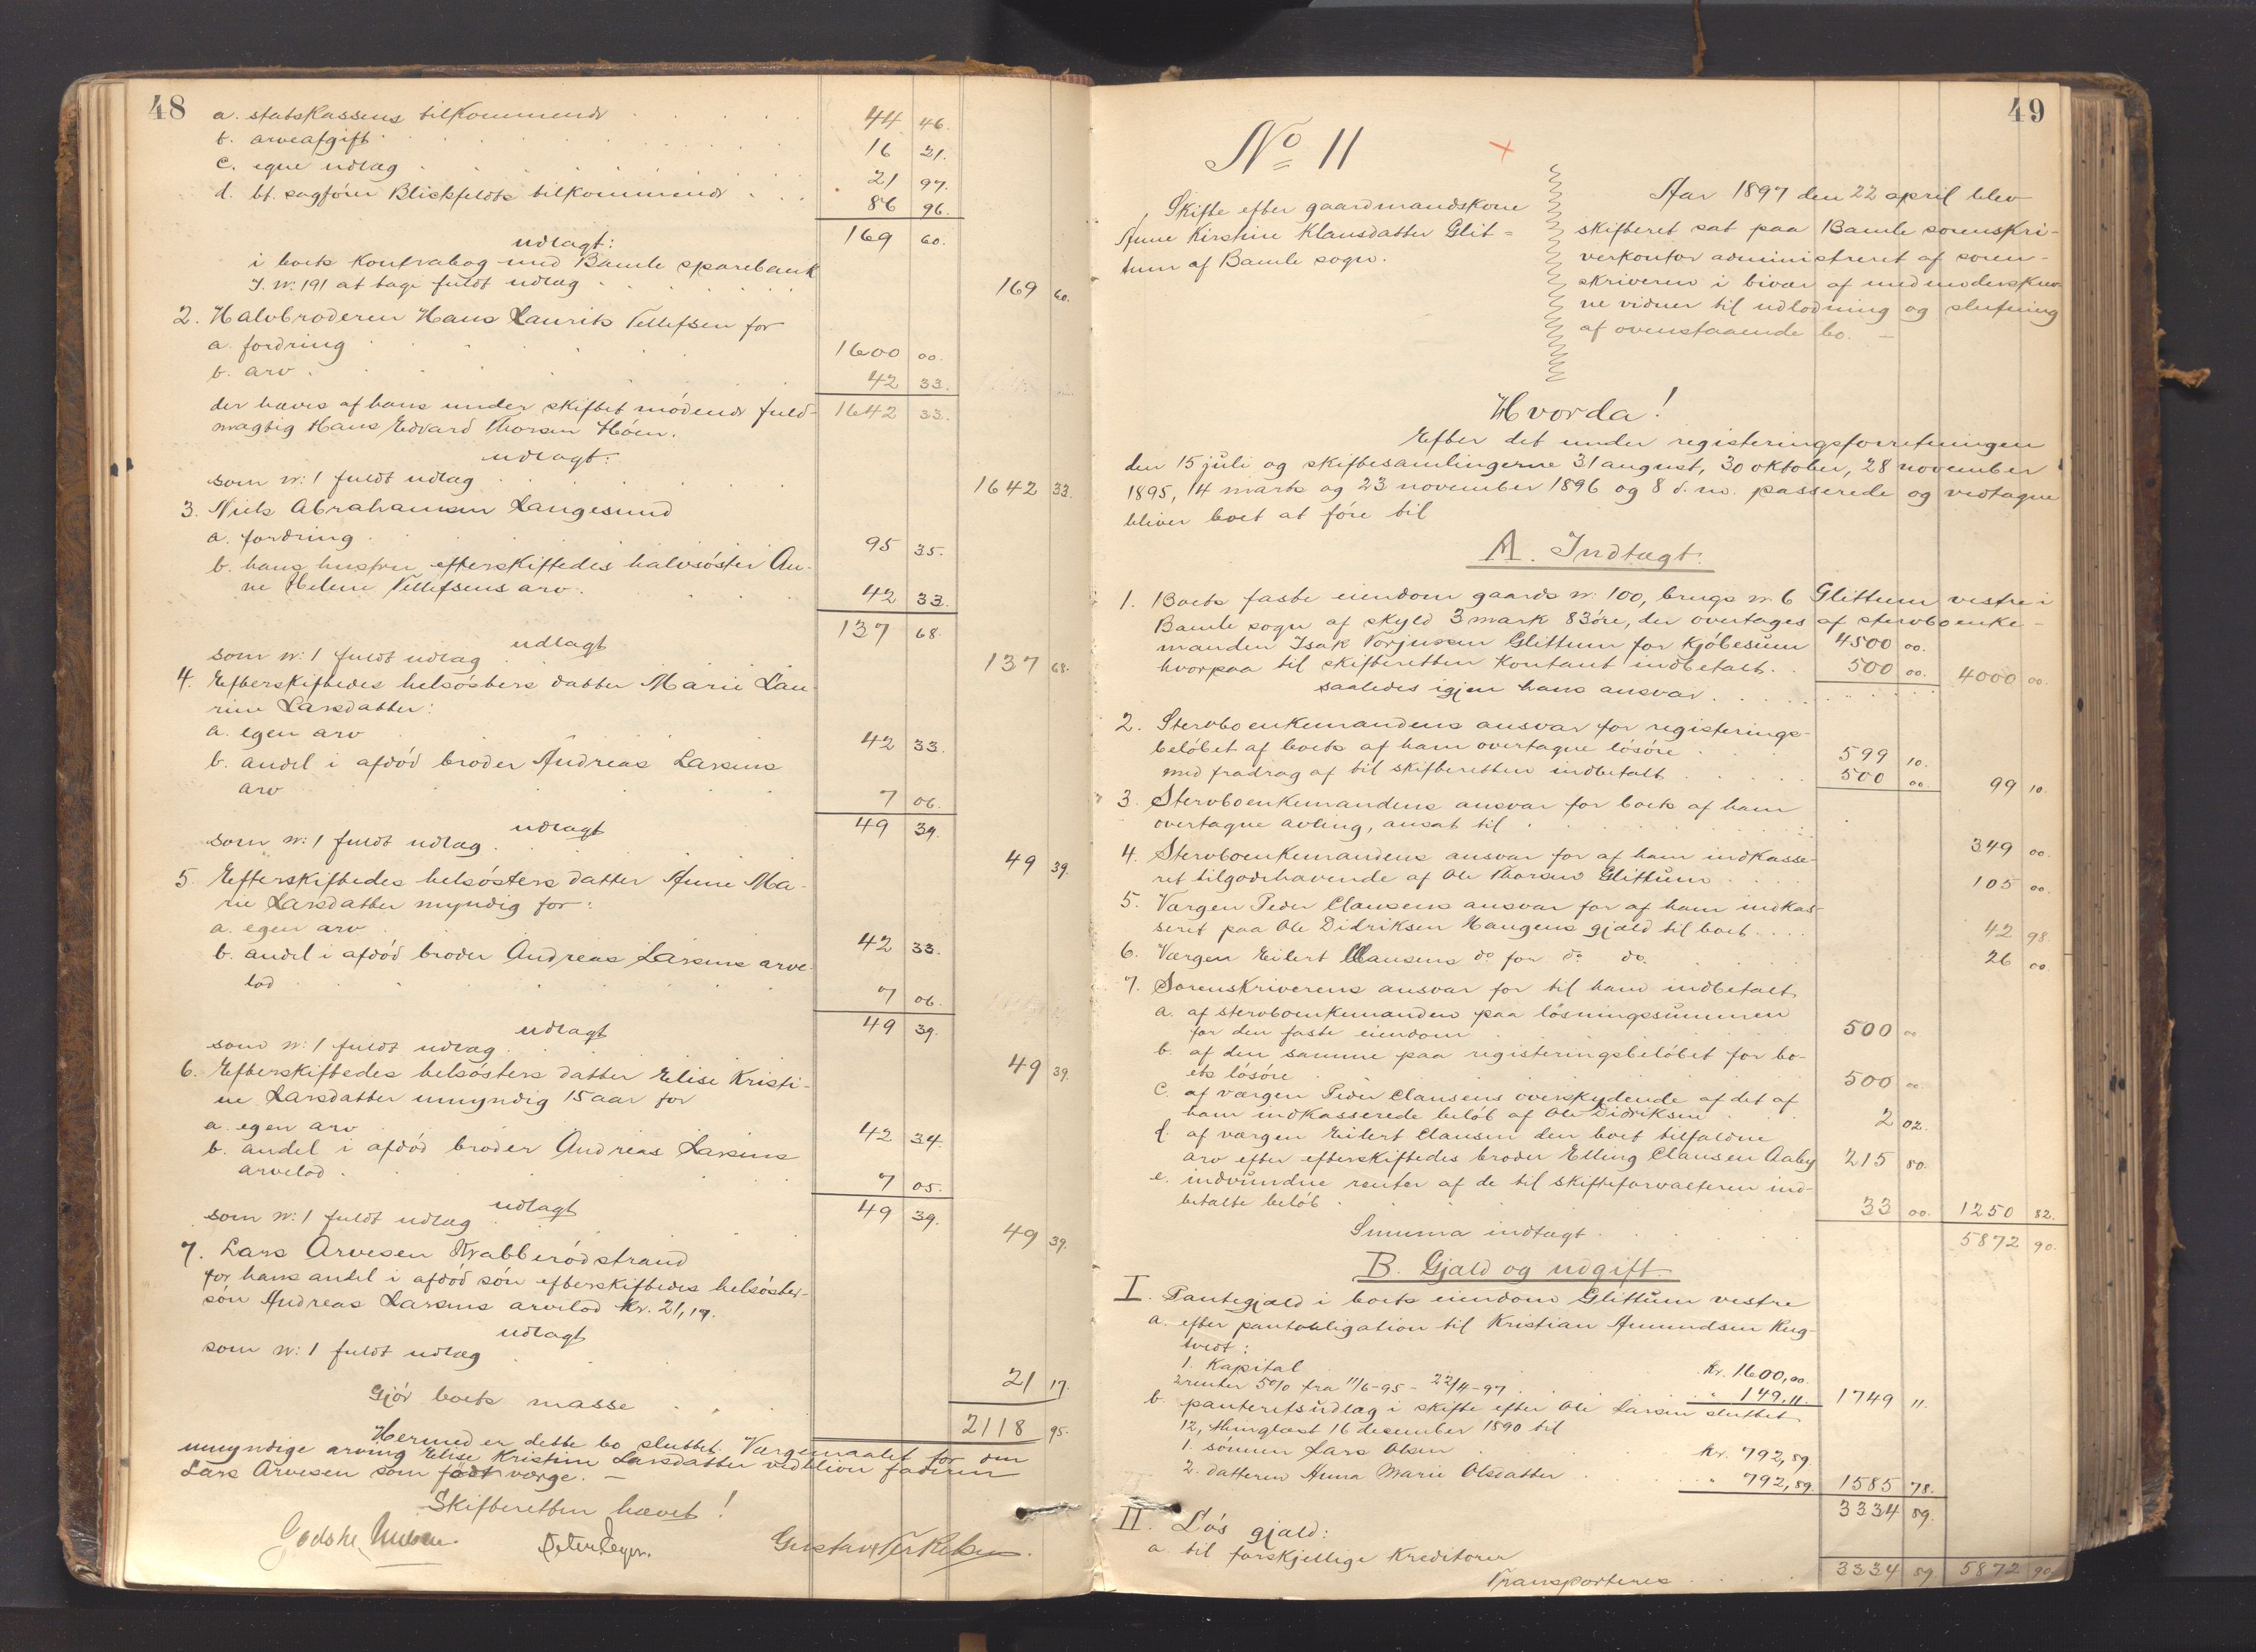 48
a. statskassens tilkommende 44 46.
b. arveafgift 16 21.
c. egne udlæg 21 97.
d. bt. sagfører Blichfeldts tilkommende 86 96.
169 60.
udlagt:
i boets kontrabog med Bamle sparebank
J. No: 191 at tage fuldt udlæg 169 60.
2. Halvbroderen Hans Laurits Tellefsen for
a. fordring 1600 00.
b. arv 42 33.
der hæves af hans under skiftet mødende fuld- 1642 33.
mægtig Hans Edvard Thorsen Høen.
udlagt:
som No: 1 fuldt udlæg 1642 33.
3. Niels Abrahamsen Langesund
a. fordring 95 35.
b. hans hustru efterskiftedes halvsøster An-
ne Helene Tellefsens arv 42 33.
137 68.
udlagt
som No: 1 fuldt udlæg 137 68.
4. Efterskiftedes helsøsters datter Marie Lau-
rine Larsdatter:
a. egen arv 42 33.
b. andel i afdød broder Andreas Larsens
arv 7 06.
49 39.
udlagt
som No: 1 fuldt udlæg 49 39.
5. Efterskiftedes helsøsters datter Anne Ma-
rie Larsdatter myndig for:
a. egen arv 42 33.
b. andel i afdød broder Andreas Larsens arve-
lod 7 06.
49 39.
udlagt
som No: 1 fuldt udlæg 49 39.
6. Efterskiftedes helsøsters datter Elise Kristi-
ne Larsdatter umyndig 15 aar for
a. egen arv 42 34.
b. andel i afdød broder Andreas Larsens
arvelod 7 05.
49 39.
udlagt
som No: 1 fuldt udlæg 49 39.
7. Lars Arvesen Krabberødstrand
for hans andel i afdød søn efterskiftedes helsøster-
søn Andreas Larsens arvelod kr. 21,17.
udlagt
som No: 1 fuldt udlæg 21 17.
Gjør boets masse 2118 95.
Hermed er dette bo sluttet. Værgemaalet for den
umyndige arving Elise Kristine Larsdatter vedbliver faderen
Lars Arvesen som født værge. –
Skifteretten hævet!
Peter Leyer. Gustav Terkelsen.
49
No 11
Skifte efter gaardmandskone
Anne Kirstine Klausdatter Glit-
tum af Bamle sogn.
Aar 1897 den 22 april blev
skifteret sat paa Bamle sorenskri-
verkontor administreret af soren-
skriveren i bivær af medunderskrev-
ne vidner til udlodning og slutning
af ovenstaaende bo. –
Hvorda!
Efter det under registeringsforretningen
den 15 juli og skiftesamlingerne 31 august, 30 oktober, 28 november
1895, 14 marts og 23 november 1896 og 8 d. m. passerede og vedtagne
bliver boet at føre til
A. Indtægt.
1. Boets faste eiendom gaards No. 100, brugs No. 6 Glittum vestre i
Bamle sogn af skyld 3 mark 83 øre, der overtages af stervboenke-
manden Isak Torjussen Glittum for kjøbesum 4500 00.
hvorpaa til skifteretten kontant indbetalt 500 00. 4000 00.
saaledes igjen hans ansvar
2. Stervboenkemandens ansvar for registerings-
beløbet af boets af ham overtagne løsøre 599 10.
med fradrag af til skifteretten indbetalt 500 00. 99 10.
3. Stervboenkemandens ansvar for boets af ham
overtagne avling, ansat til 349 00.
4. Stervboenkemandens ansvar for af ham indkasse-
ret tilgodehavende af Ole Thorsen Glittum 105 00.
5. Værgen Peder Clausens ansvar for af ham indkas-
seret paa Ole Didriksen Haugens gjæld til boet 42 98.
6. Værgen Eilert Clausens do for do do. 26 00.
7. Sorenskriverens ansvar for til ham indbetalt
a. af stervboenkemanden paa løsningssummen
for den faste eiendom 500 00
b. af den samme paa registeringsbeløbet for bo-
ets løsøre 500 00.
c. af værgen Peder Clausens overskydende af det af
ham indkasserede beløb af Ole Didriksen 2 02.
d. af værgen Eilert Clausen den boet tilfaldne
arv efter efterskiftedes broder Elling Clausen Aaby 215 80.
e. indvundne renter af de til skifteforvalteren ind-
betalte beløb 33 00. 1250 82.
Summa indtægt 5872 90.
B. Gjæld og udgift.
I. Pantegjæld i boets eiendom Glittum vestre
a. efter pantobligation til Kristian Amundsen Rug-
tvedt:
1. Kapital kr. 1600,00.
2 renter 5% fra 11/6-95 - 22/4-97 " 149.11. 1749 11.
b. panteretsudlæg i skifte efter Ole Larsen sluttet
12, thinglæst 16 desember 1890 til
1. sønnen Lars Olsen kr. 792,89.
2. datteren Anna Marie Olsdatter " 792,89. 1585 78.
3334 89.
II. Løs gjæld:
a. til forskjellige kreditorer
Transporteres 3334 89 5872 90